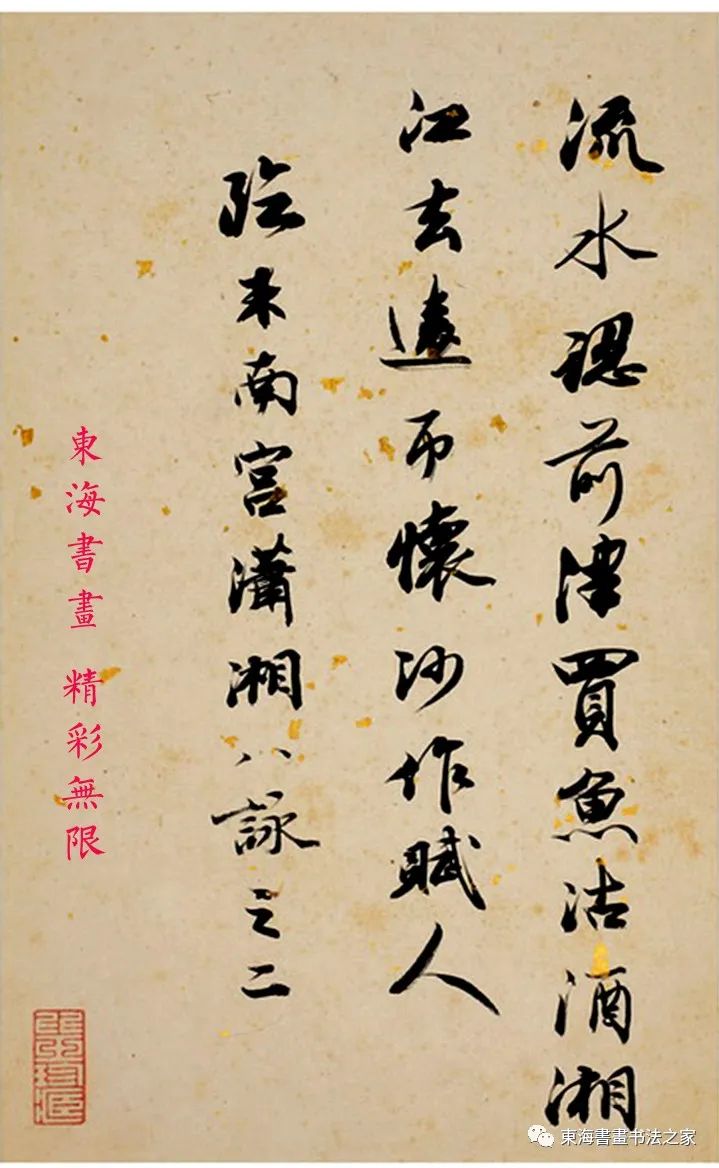 流水認前津買魚沽酒湘
江去遠吊懷沙作賦人
臨米南宮瀟湘八詠之二
東海書畫 精彩無限
東海書畫书法之家